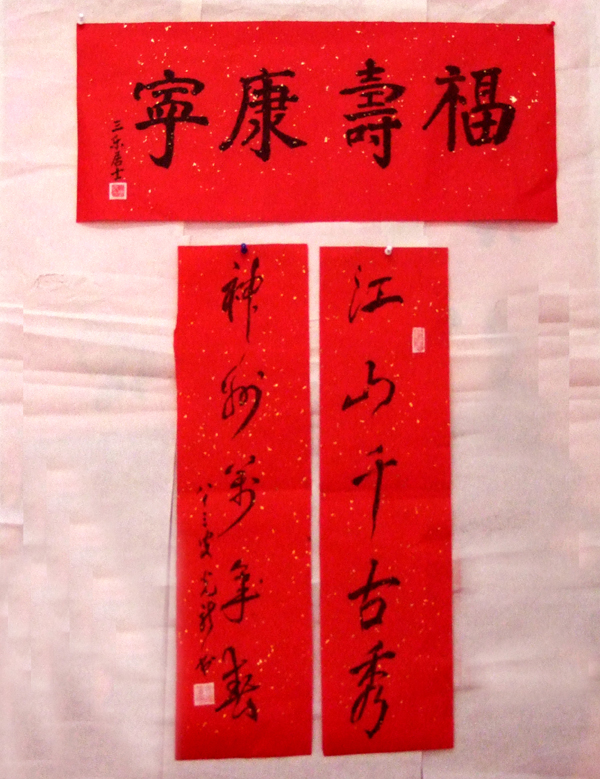 福壽康寧
三乐居士
江山千古秀
神州萬年春